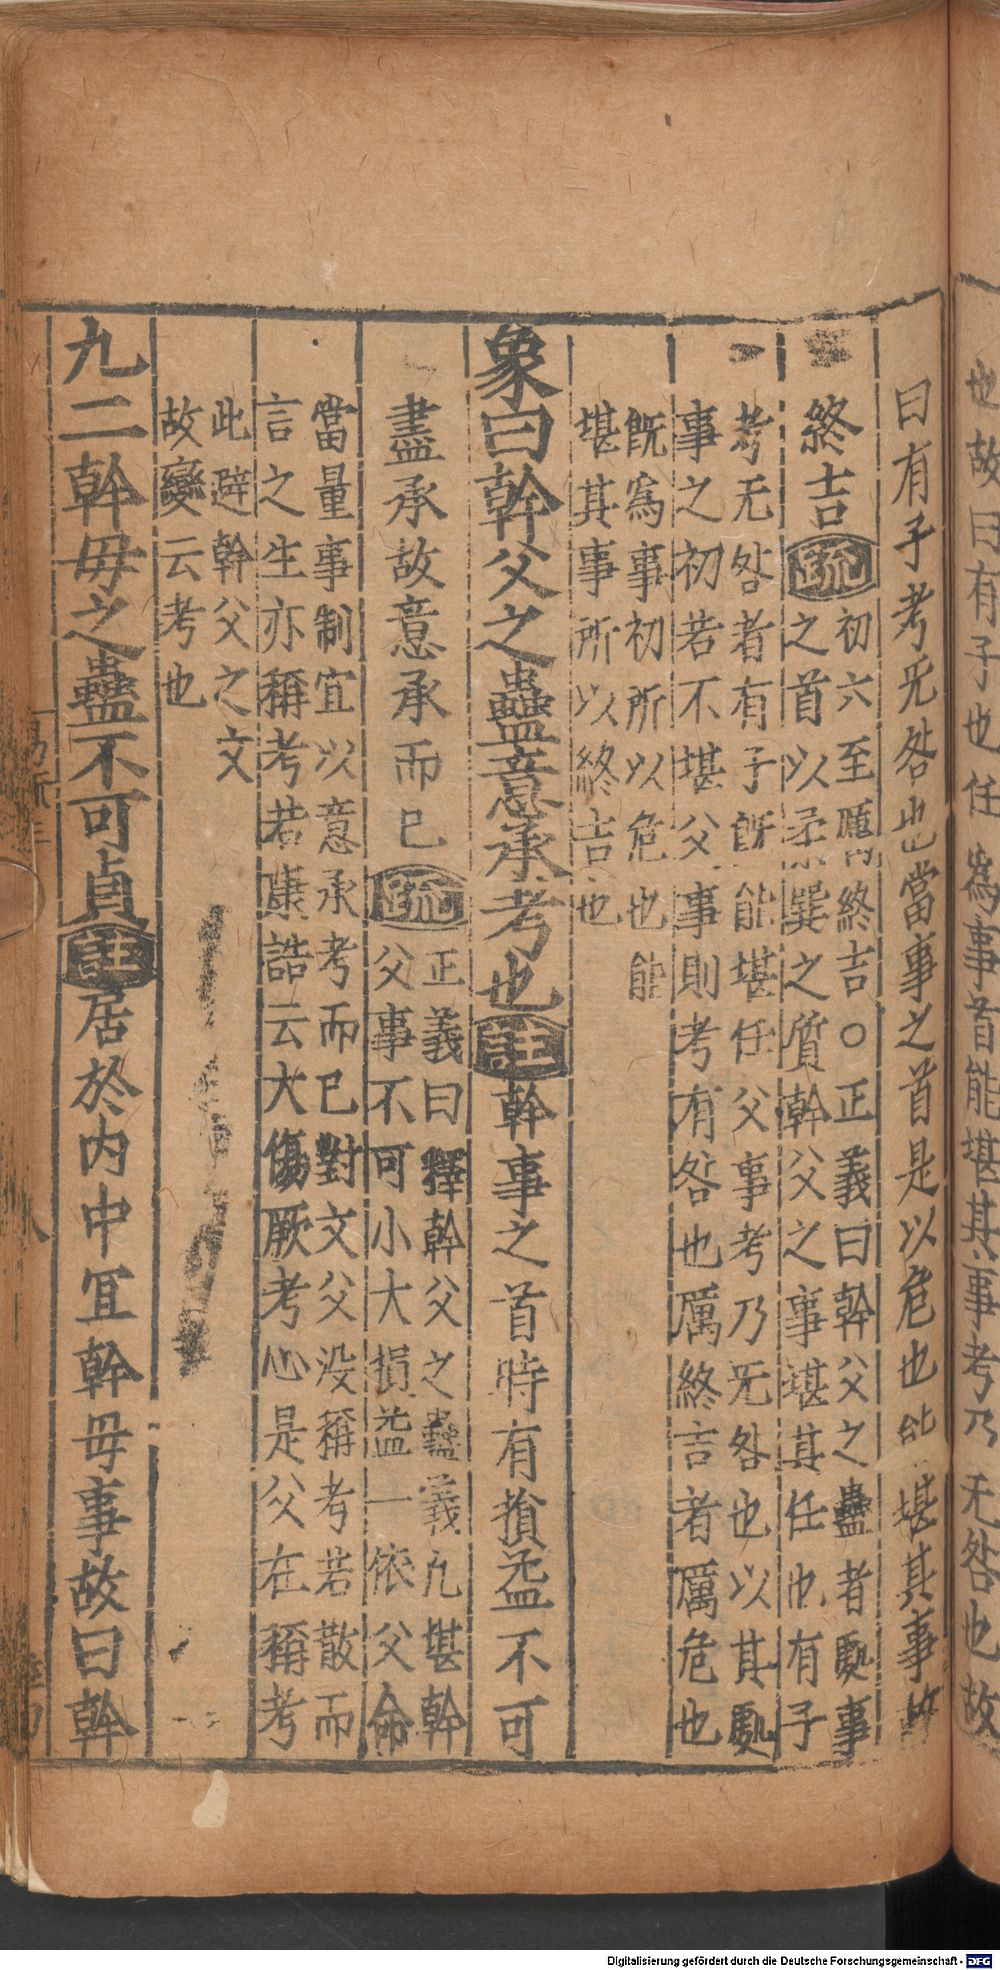 也故曰有子也任爲事首能堪其事考乃无咎也故
曰有子考无咎也當事之首是以危也能堪其事故
終吉疏初六至厲終吉○正義曰幹父之蠱者處事
之首以柔巽之質幹父之事堪其任也有子
考无咎者有子旣能堪任父事考乃无咎也以其處
事之初若不堪父事則考有咎也厲終吉者厲危也
旣爲事初所以危也能
堪其事所以終吉也
象曰幹父之蠱意承考也註幹事之首時有損益不可
盡承故意承而已疏正義曰釋幹父之蠱義凡堪幹
父事不可小大損益一依父命
當量事制宜以意承考而已對文父没稱考若散而
言之生亦稱考若康誥云大傷厥考心是父在稱考
此避幹父之文
故變云考也
九二幹母之蠱不可貞註居於内中冝幹母事故曰幹
Digitalisierung gefördert durch die Deutsche Forschungsgemeinschaft - DFG